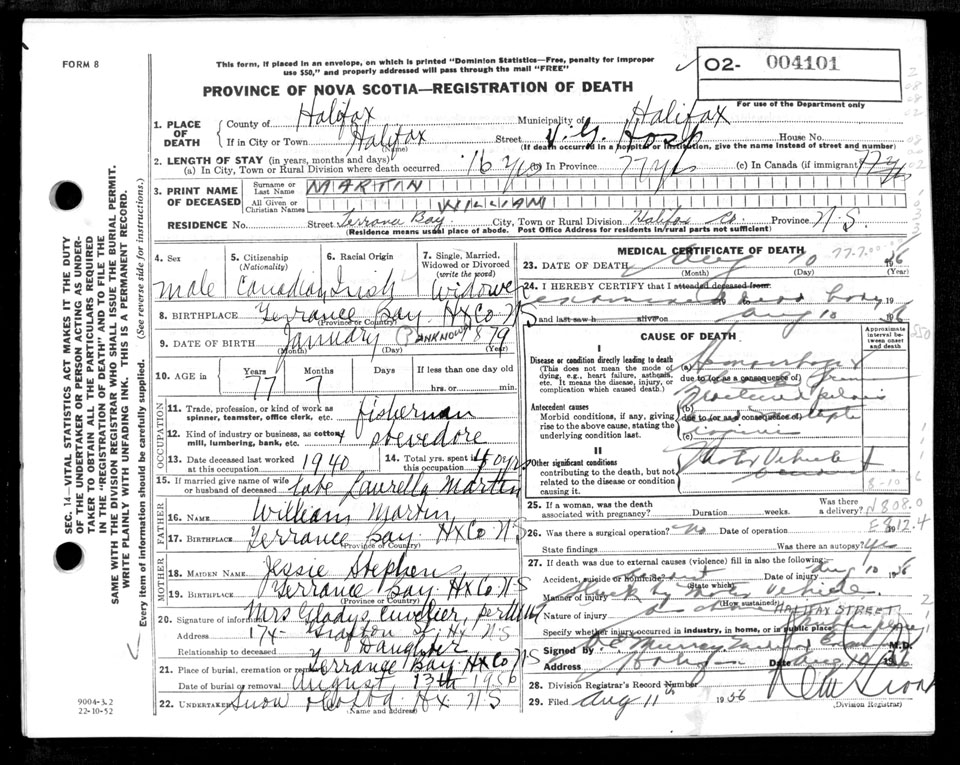 FORM 8
This form, if placed in an envelope, on which is printed "Dominion Statistics—Free, penalty for improper
use $50," and properly addressed will pass through the mail "FREE"
O2- 004101
For use of the Department only
PROVINCE OF NOVA SCOTIA—REGISTRATION OF DEATH
1. PLACE OF DEATH
County of Halifax Municipality of Halifax
If in City or Town Halifax Street V.G. Hosp House No.
(Name) (If death occurred in a hospital or institution, give the name instead of street and number)
2. LENGTH OF STAY (in years, months and days)
(a) In City, Town or Rural Division where death occurred 16 yrs (b) In Province 77 yrs (c) In Canada (if immigrant) 77 yrs
3. PRINT NAME OF DECEASED
Surname or Last Name MARTIN
All Given or Christian Names WILLIAM
RESIDENCE No. Street Terrance Bay City, Town or Rural Division Halifax Co. Province N.S.
(Residence means usual place of abode. Post Office Address for residents in rural parts not sufficient)
4. Sex male
5. Citizenship (Nationality) Canadian
6. Racial Origin Irish
7. Single, Married, Widowed or Divorced (write the word) Widower
8. BIRTHPLACE Terrance Bay Hx Co NS
(Province or Country)
9. DATE OF BIRTH January UNKNOWN 1879
(Month) (Day) (Year)
10. AGE in Years 77 Months 7 Days If less than one day old hrs. or min.
OCCUPATION
11. Trade, profession, or kind of work as spinner, teamster, office clerk, etc. fisherman
12. Kind of industry or business, as cotton mill, lumbering, bank, etc. stevedore
13. Date deceased last worked at this occupation 1940
14. Total yrs. spent in this occupation 40 yrs
15. If married give name of wife or husband of deceased late Laurella Martin
FATHER
16. NAME William Martin
17. BIRTHPLACE Terrance Bay Hx Co NS
(Province or Country)
MOTHER
18. MAIDEN NAME Jessie Stephens
19. BIRTHPLACE Terrance Bay Hx Co NS
(Province or Country)
20. Signature of informant Mrs Gladys
Address 174 Grafton St Hx NS
Relationship to deceased Daughter
21. Place of burial, cremation or removal Terrance Bay Hx Co NS
Date of burial or removal August 13th 1956
22. UNDERTAKER Snow & Co Ltd Hx NS
(Name and address)
MEDICAL CERTIFICATE OF DEATH
23. DATE OF DEATH Aug 10 1956
(Month) (Day) (Year)
24. I HEREBY CERTIFY that I attended deceased from
examined dead body 19
and last saw h alive on Aug 10 1956
CAUSE OF DEATH
Approximate interval between onset and death
I
Disease or condition directly leading to death
(This does not mean the mode of dying, e.g., heart failure, asthenia, etc. It means the disease, injury, or complication which caused death.)
(a) Hemorrhage &
due to (or as a consequence of)
Antecedent causes
Morbid conditions, if any, giving rise to the above cause, stating the underlying condition last.
(b) Fractured pelvis
due to (or as a consequence of)
(c) injuries
II
Other significant conditions
contributing to the death, but not related to the disease or condition causing it.
Motor Vehicle
8-10
25. If a woman, was the death associated with pregnancy? Duration weeks. Was there a delivery?
N808.0
26. Was there a surgical operation? no Date of operation 19
E812.4
State findings Was there an autopsy? yes
27. If death was due to external causes (violence) fill in also the following:
Accident, suicide or homicide? Date of injury Aug 10 1956
(State which)
Manner of injury Struck by Motor Vehicle
(How sustained)
Nature of injury
HALIFAX STREET
Specify whether injury occurred in industry, in home, or in public place
Signed by M.D.
Address Halifax Date Aug 10 1956
28. Division Registrar's Record Number
29. Filed Aug 11th 1956
(Division Registrar)
SEC. 14—VITAL STATISTICS ACT MAKES IT THE DUTY
OF THE UNDERTAKER OR PERSON ACTING AS UNDER-
TAKER TO OBTAIN ALL THE PARTICULARS REQUIRED
IN THE "REGISTRATION OF DEATH" AND TO FILE THE
SAME WITH THE DIVISION REGISTRAR WHO SHALL ISSUE THE BURIAL PERMIT.
WRITE PLAINLY WITH UNFADING INK. THIS IS A PERMANENT RECORD.
Every item of information should be carefully supplied. (See reverse side for instructions.)
9004-3.2
22-10-52